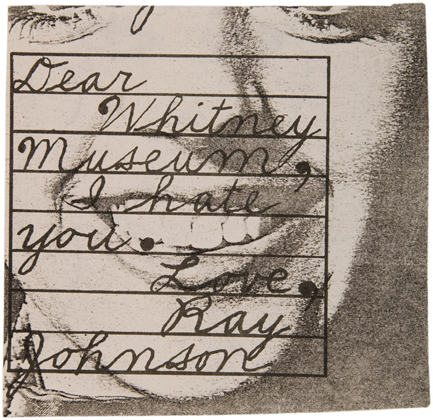 Dear
Whitney
Museum,
I hate
you.
Love,
Ray
Johnson